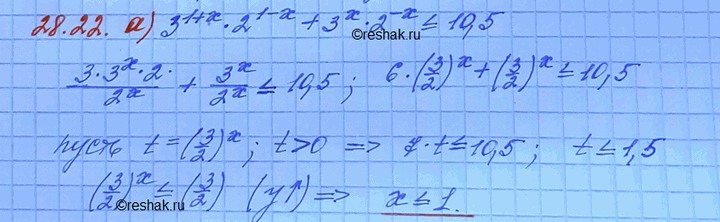 28.22. а) 3^{1+x} · 2^{1-x} + 3^x · 2^{-x} ≤ 10,5
©reshak.ru
\frac{3·3^x·2·}{2^x} + \frac{3^x}{2^x} ≤ 10,5 ; 6·(\frac{3}{2})^x + (\frac{3}{2})^x ≤ 10,5
пусть t = (\frac{3}{2})^x ; t > 0 => 7·t ≤ 10,5 ; t ≤ 1,5
(\frac{3}{2})^x ≤ (\frac{3}{2}) (y↑) => x ≤ 1.
©reshak.ru